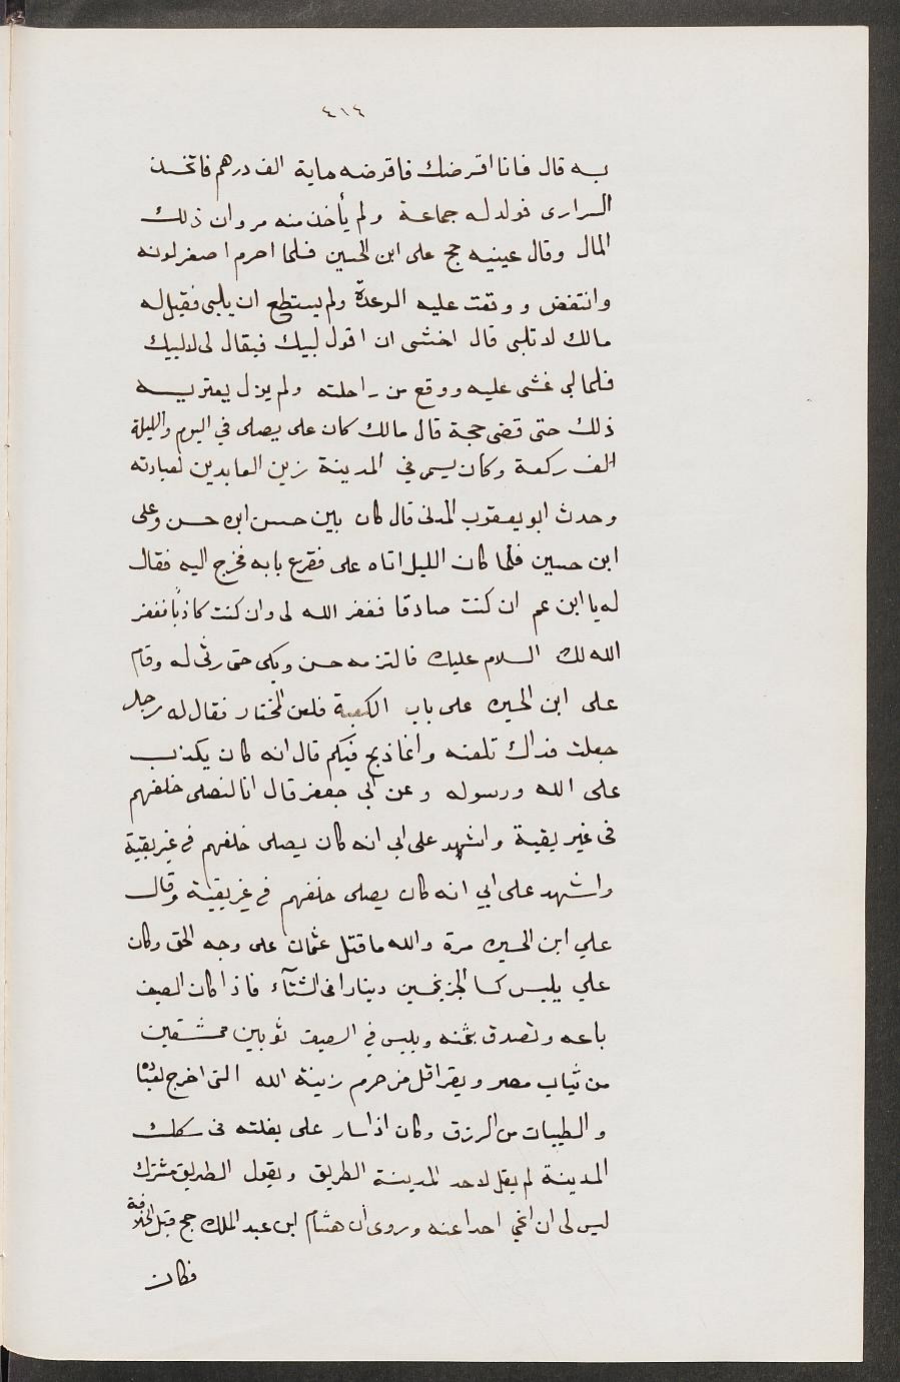 ٤١٤
به قال فانا اقرضك فاقرضه ماية الف درهم فاتخذ
السرارى فولد له جماعة ولم يأخذ منه مروان ذلك
المال وقال عينيه حج على ابن الحسين فلما احرم اصفر لونه
وانتفض ووقعت عليه الرعدة ولم يستطع ان يلبى فقيل له
مالك لا تلبى قال اخشى ان اقول لبيك فيقال لى لا لبيك
فلما لبى غشى عليه ووقع من راحلته ولم يزل يعتريه
ذلك حتى قضى حجة قال مالك كان على يصلى في اليوم والليلة
الف ركعة وكان يسمى في المدينة زين العابدين لعبادته
وحدث ابو يعقوب المدنى قال كان بين حسن ابن حسن وعلى
ابن حسين فلما كان الليل اتاه على فقرع بابه فخرج اليه فقال
له يا ابن عم ان كنت صادقا فغفر الله لى وان كنت كاذبا فغفر
الله لك السلام عليك فالتزمه حسن وبكى حتى رثى له وقام
على ابن الحسين على باب الكعبة فلعن المختار فقال له رجل
جعلت فداك تلعنه وانما ذبح فيكم قال انه كان يكذب
على الله ورسوله وعن ابى جعفر قال انا لنصلى خلفهم
فى غير بقية واشهد على ابى انه كان يصلى خلفهم فى غير بقية
واشهد على ابي انه كان يصلى خلفهم فى غير بقية وقال
علي ابن الحسين مرة والله ما قتل عثمان على وجه الحق وكان
علي يلبس كسا الخز بخمسين دينارا فى الشتآء فاذا كان الصيف
باعه وتصدق بثمنه ويلبس في الصيف ثوبين ممشقين
من ثياب مصر ويقرا قل من حرم زينة الله التى اخرج لعباده
والطيبات من الرزق وكان اذا سار على بغلته فى سكك
المدينة لم يقل لاحد المدينة الطريق ويقول الطريق مشترك
ليس لى ان انحي احدا عنه وروى ان هشام ابن عبد الملك حج قبل الخلافة
فكان